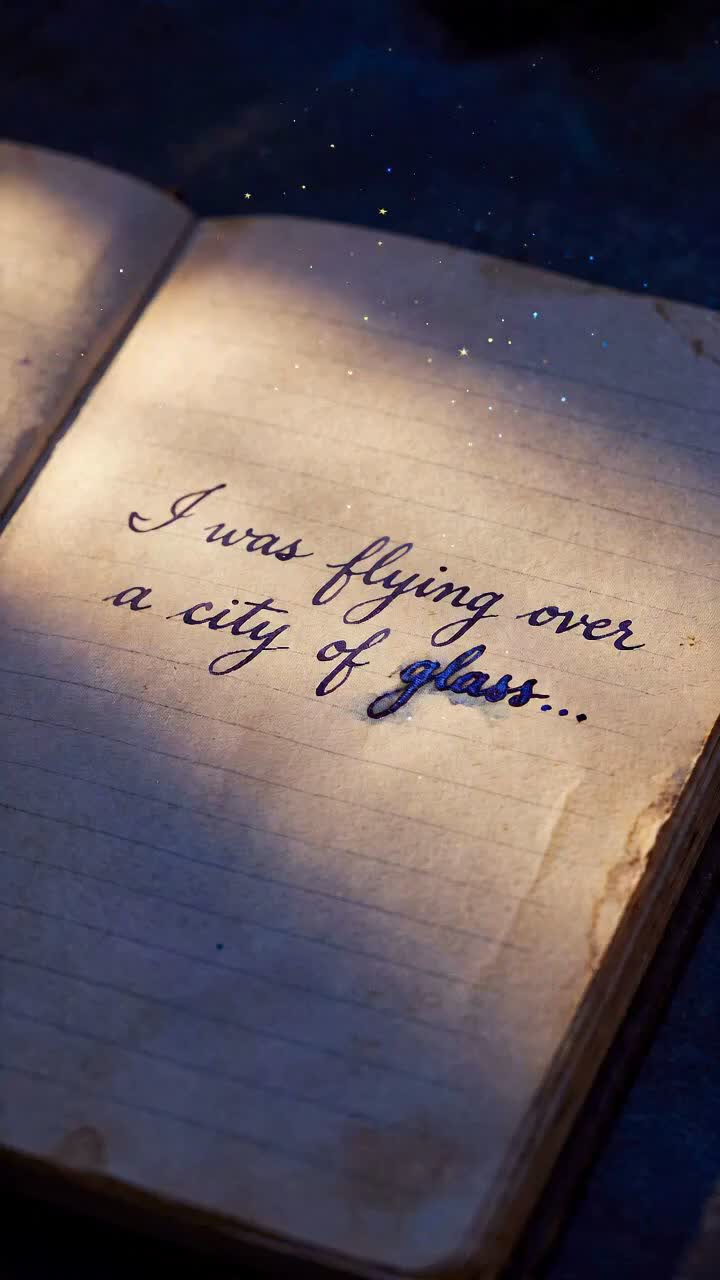 I was flying over
a city of glass...